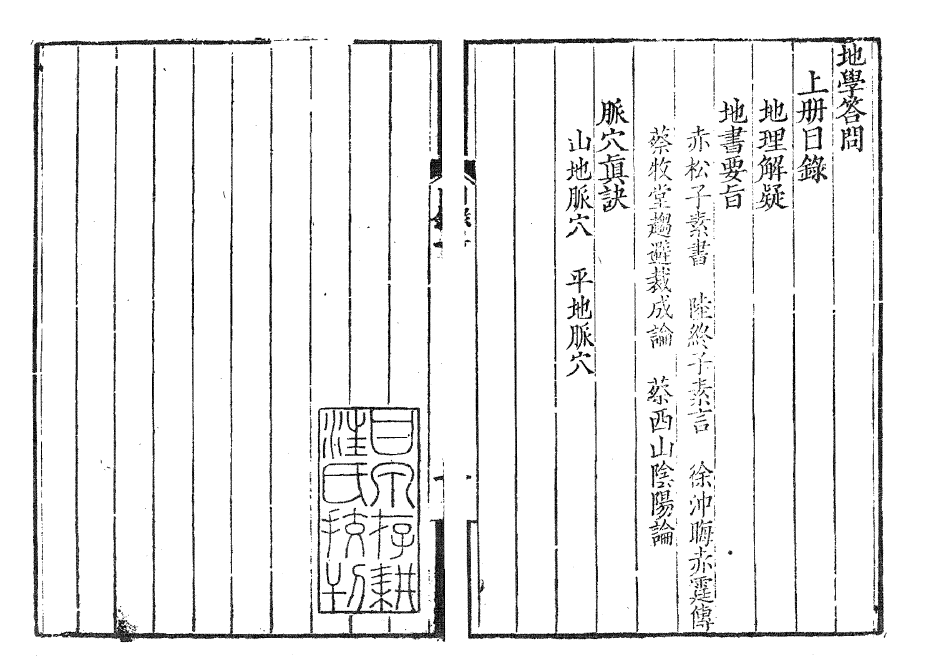 地學答問
上册目錄
地理解疑
地書要旨
赤松子素書　陸終子素言　徐沖晦赤霆傳
蔡牧堂趨避裁成論　蔡西山陰陽論
脈穴真訣
山地脈穴　平地脈穴
目錄
一